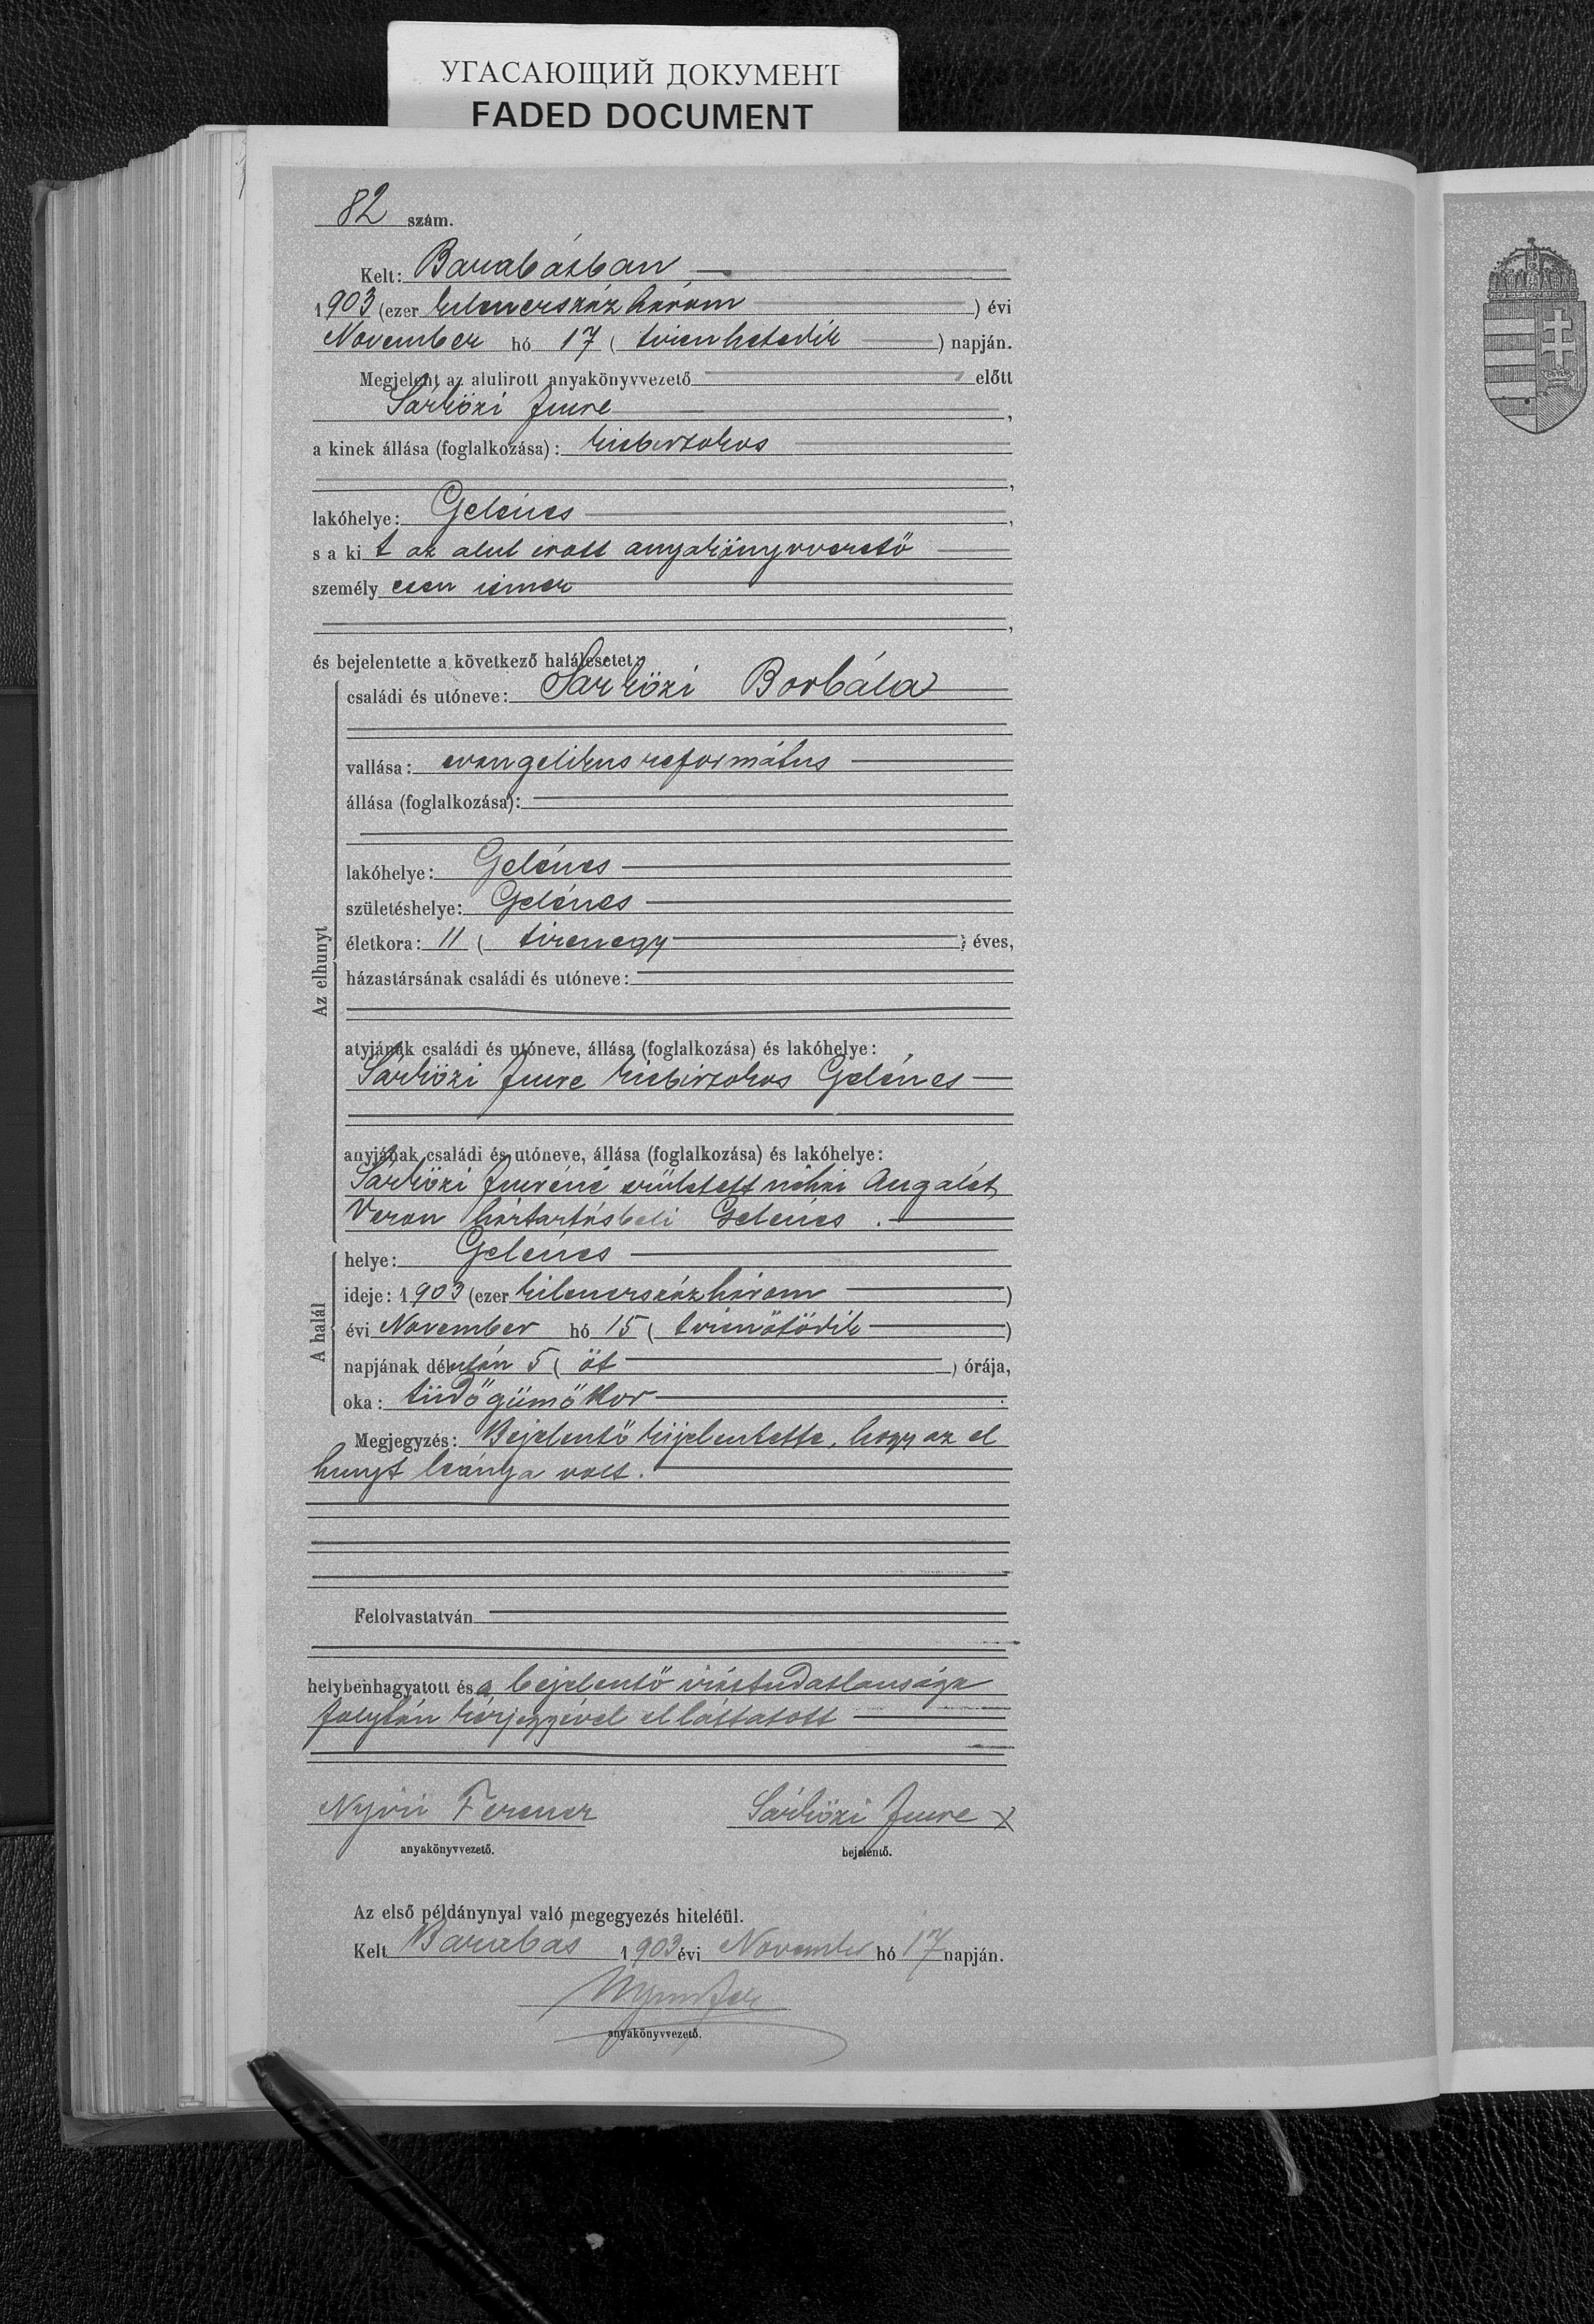 УГАСАЮЩИЙ ДОКУМЕНТ
FADED DOCUMENT
82 szám.
Kelt: Barabásban
1903 (ezer kilenczszáz három ) évi
November hó 17 ( tizenhetedik ) napján.
Megjelent az alulirott anyakönyvvezető előtt
Sárközi Imre,
a kinek állása (foglalkozása): kisbirtokos
lakóhelye: Gelénes,
s a kit az alul irott anyakönyvvezető
személyesen ismer
és bejelentette a következő halálesetet:
Az elhunyt
családi és utóneve: Sárközi Borbála
vallása: evangelikus református
állása (foglalkozása):
lakóhelye: Gelénes
születéshelye: Gelénes
életkora: 11 ( tizenegy ) éves,
házastársának családi és utóneve:
atyjának családi és utóneve, állása (foglalkozása) és lakóhelye:
Sárközi Imre kisbirtokos Gelénes
anyjának családi és utóneve, állása (foglalkozása) és lakóhelye:
Sárközi Imréné született néhai
Veron háztartásbeli Gelénes.
A halál
helye: Gelénes
ideje: 1903 (ezer kilenczszáz három )
évi November hó 15 ( tizenötödik )
napjának délután 5 ( öt ) órája,
oka: tüdőgümőkor.
Megjegyzés: Bejelentő kijelentette, hogy az el
hunyt leánya volt.
Felolvastatván
helybenhagyatott és a bejelentő irástudatlansága
folytán kézjegyével elláttatott
Nyiri Ferencz Sárközi Imre x
anyakönyvvezető. bejelentő.
Az első példánynyal való megegyezés hiteléül.
Kelt Barabás 1903 évi November hó 17 napján.
anyakönyvvezető.